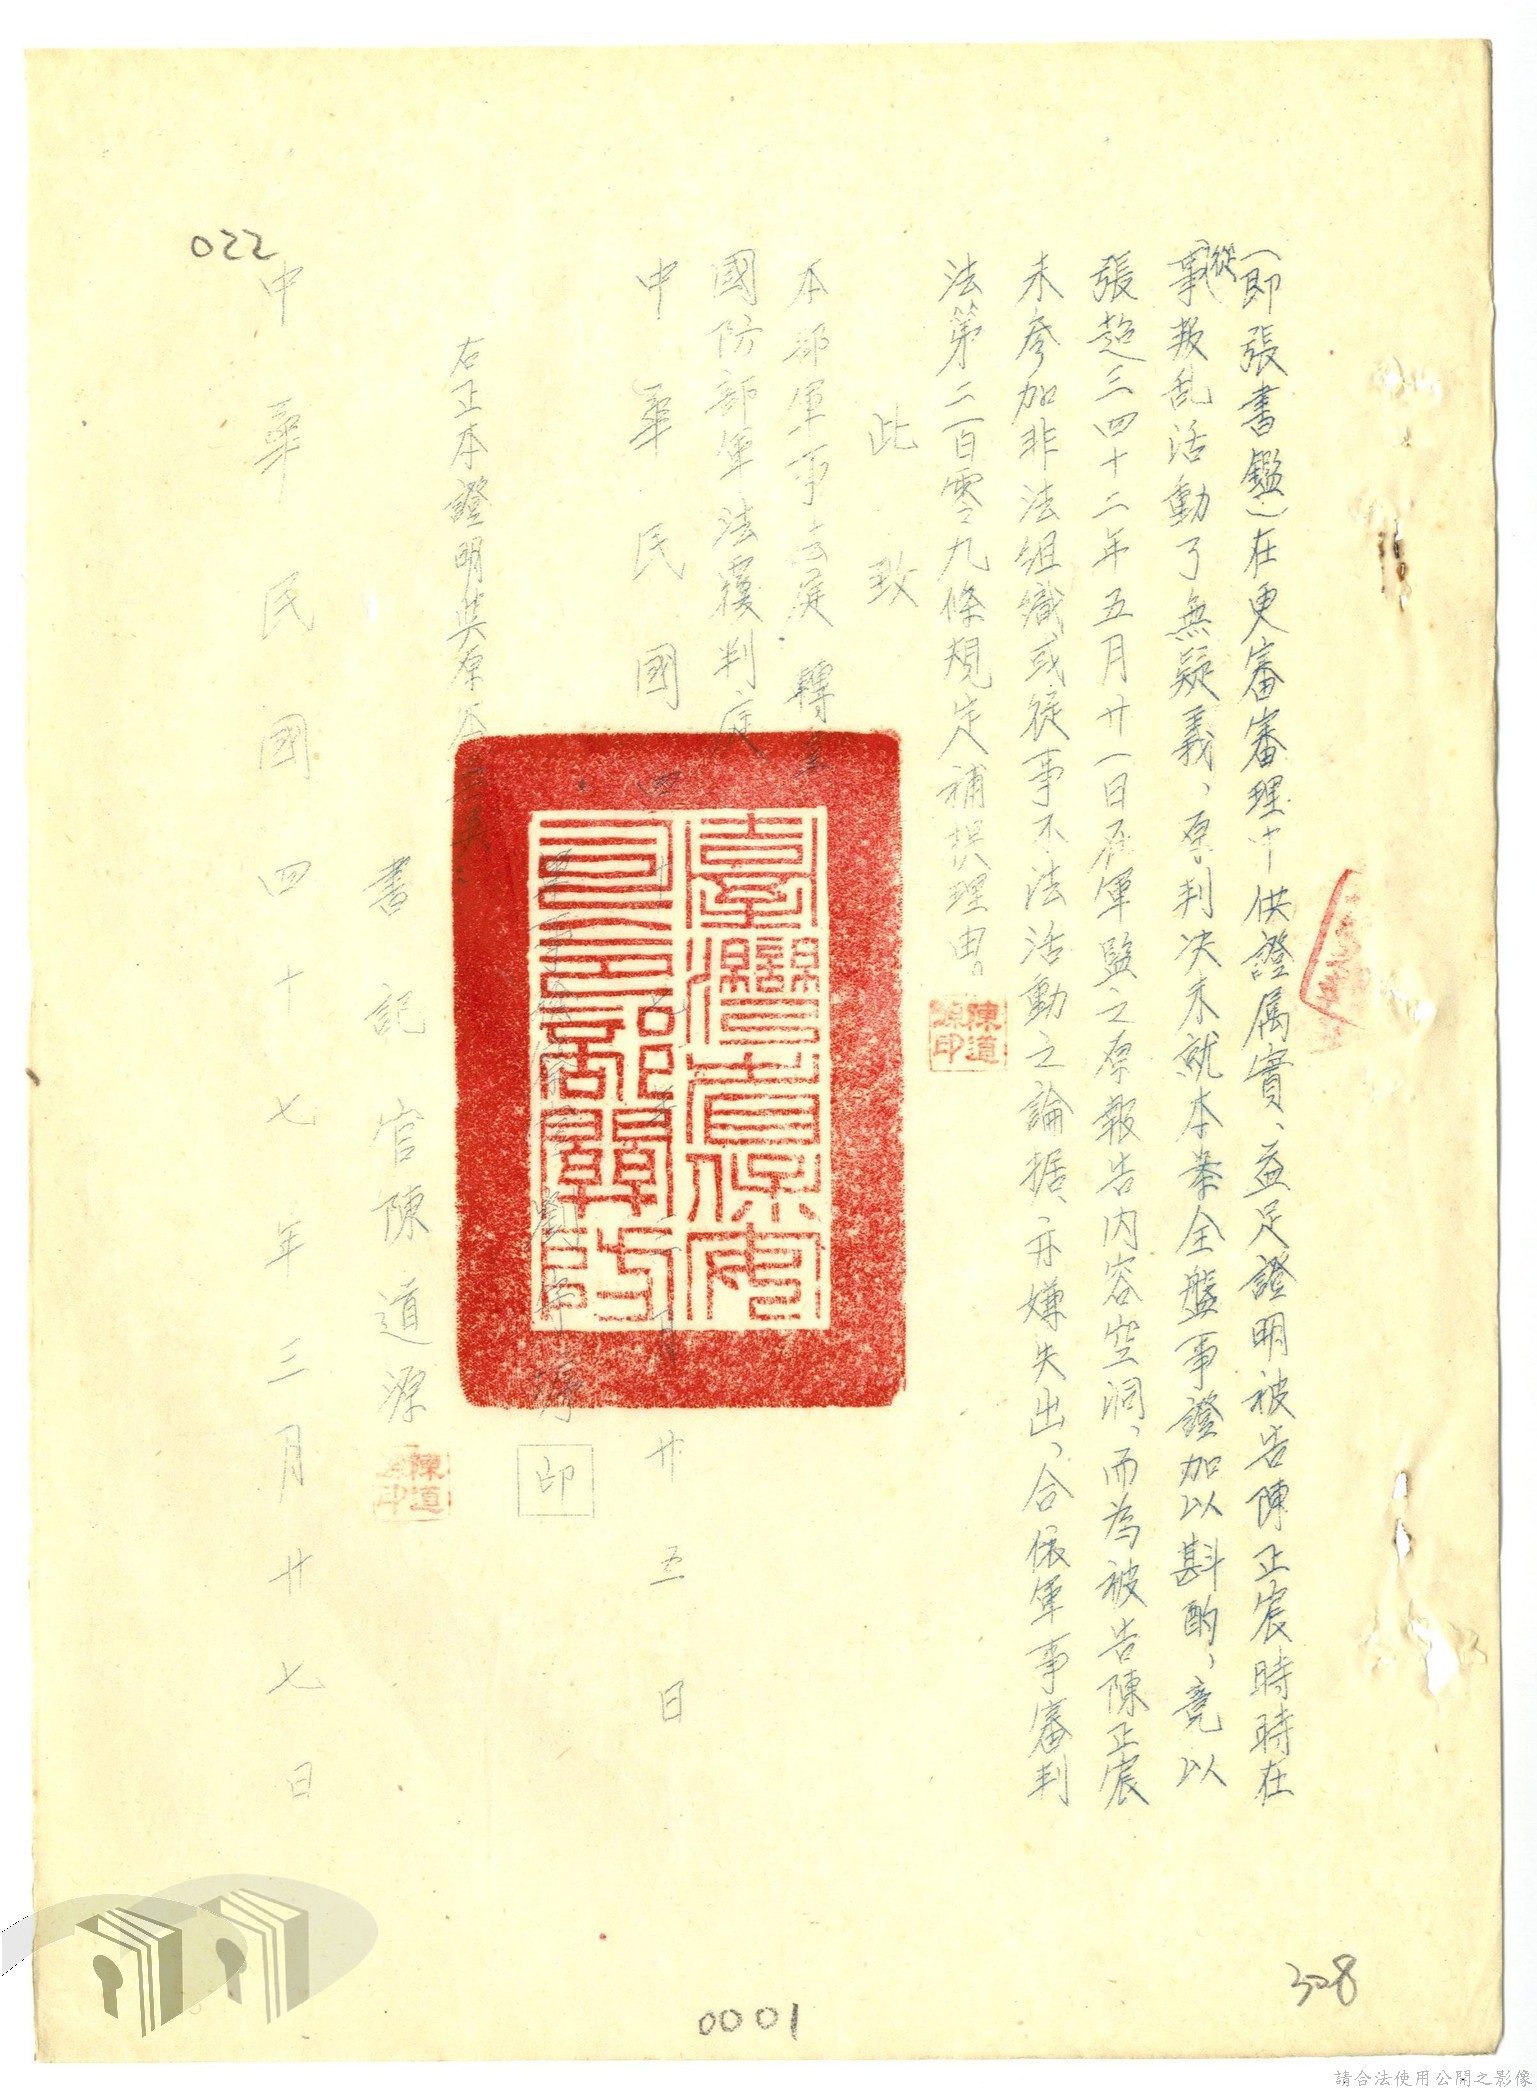 (即張書鑑)在更審審理中供證屬實、益足證明被告陳正宸時時在
從
事叛乱活動了無疑義、原判決未就本案全盤事證加以斟酌、竟以
張超三四十二年五月廿一日在軍監之原報告内容空洞、而為被告陳正宸
未參加非法組織或從事不法活動之論据、亦嫌失出、合依軍事審判
法第二百零九條規定補撰理由。
陳道源印
此致
本部軍事法庭 轉呈
國防部軍法覆判庭
中華民國四十七年三月廿五日
印
臺灣省保安司令部關防
右正本證明與原本無異
書記官陳道源
陳道源印
中華民國四十七年三月廿七日
022
0001
308
請合法使用公開之影像